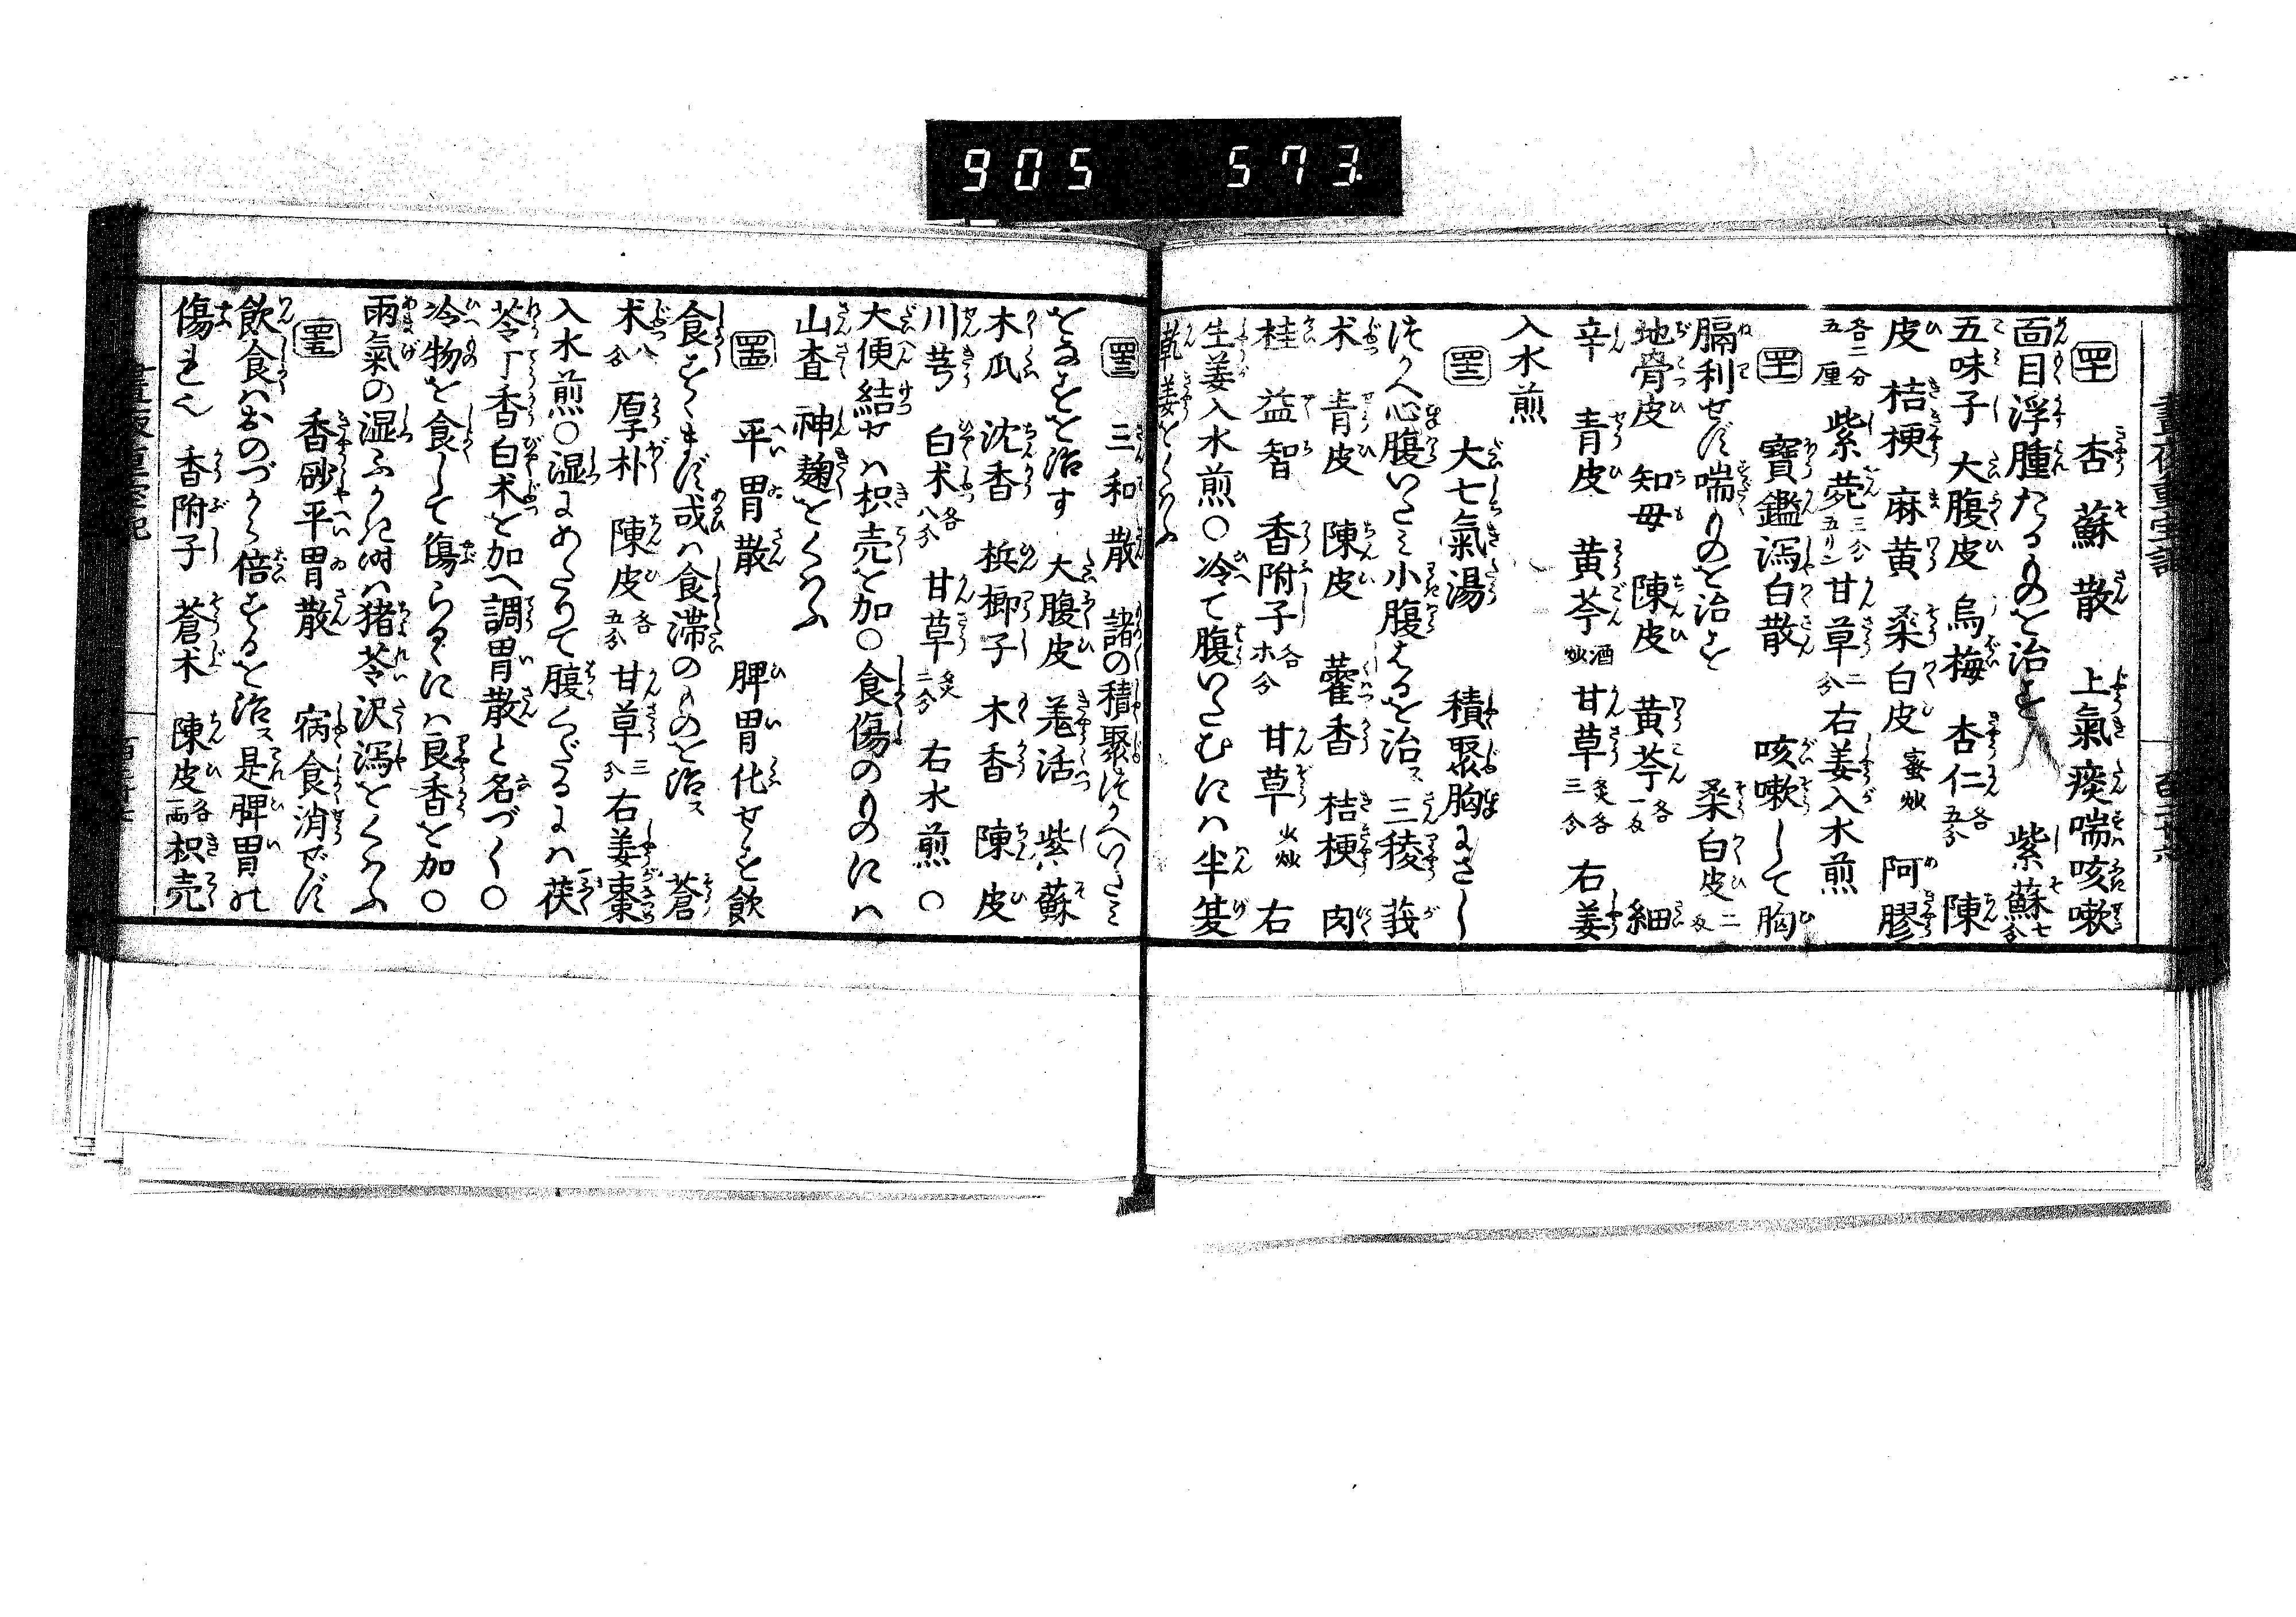 905 573
四十 杏蘇散 上氣痰喘咳嗽
面目浮腫たるものを治を 紫蘇七分
五味子 大腹皮 烏梅 杏仁各五分 陳
皮 桔梗 麻黄 桑白皮蜜炒 阿膠
各二分五厘 紫菀三分五リン 甘草二分 右姜入水煎
四十一 寶鑑瀉白散 咳嗽して胸
膈利せず喘ものを治を 桑白皮二匁
地骨皮 知母 陳皮 黄芩各一匁 細
辛 青皮 黄芩酒炒 甘草炙各三分 右姜
入水煎
四十二 大七氣湯 積聚胸にさし
つかへ心腹いたみ小腹はるを治ス 三稜 莪
朮 青皮 陳皮 藿香 桔梗 肉
桂 益智 香附子各六分 甘草火炒 右
生姜入水煎○冷て腹いたむには半夏
乾姜をくわふ
四十三 三和散 諸の積聚つかへいたみ
をなすを治す 大腹皮 羗活 紫蘇
木瓜 沈香 梹榔子 木香 陳皮
川芎 白朮各八分 甘草炙二分 右水煎○
大便結せは枳売を加○食傷のものには
山査 神麹をくわふ
四十四 平胃散 脾胃化せず飲
食すゝまず或は食滞のものを治ス 蒼
朮八分 厚朴 陳皮各五分 甘草三分 右姜棗
入水煎○湿にあたりて腹くだるには茯
苓丁香白朮を加へ調胃散と名づく○
冷物を食して傷らるゝには良香を加○
雨氣の湿ふかき時は猪苓沢瀉をくわふ
四十五 香砂平胃散 病食消せず
飲食はおのづから倍するを治ス是脾胃の
傷れ也 香附子 蒼朮 陳皮各一両 枳売